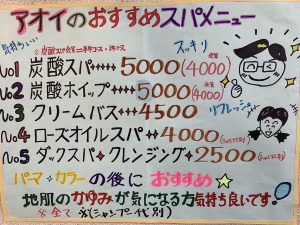 アオイのおすすめスパメニュー
気持ちいい
スッキリ
No1 炭酸スパ 5000(4000)
No2 炭酸ホイップ 5000(4000)
No3 クリームバス 4500
リフレッシュ
No4 ローズオイルスパ 4000
No5 ダックスパ クレンジング 2500
パーマ・カラーの後におすすめ☆
地肌のかゆみが気になる方気持ち良いです!
※全て ※(シャンプー代別)